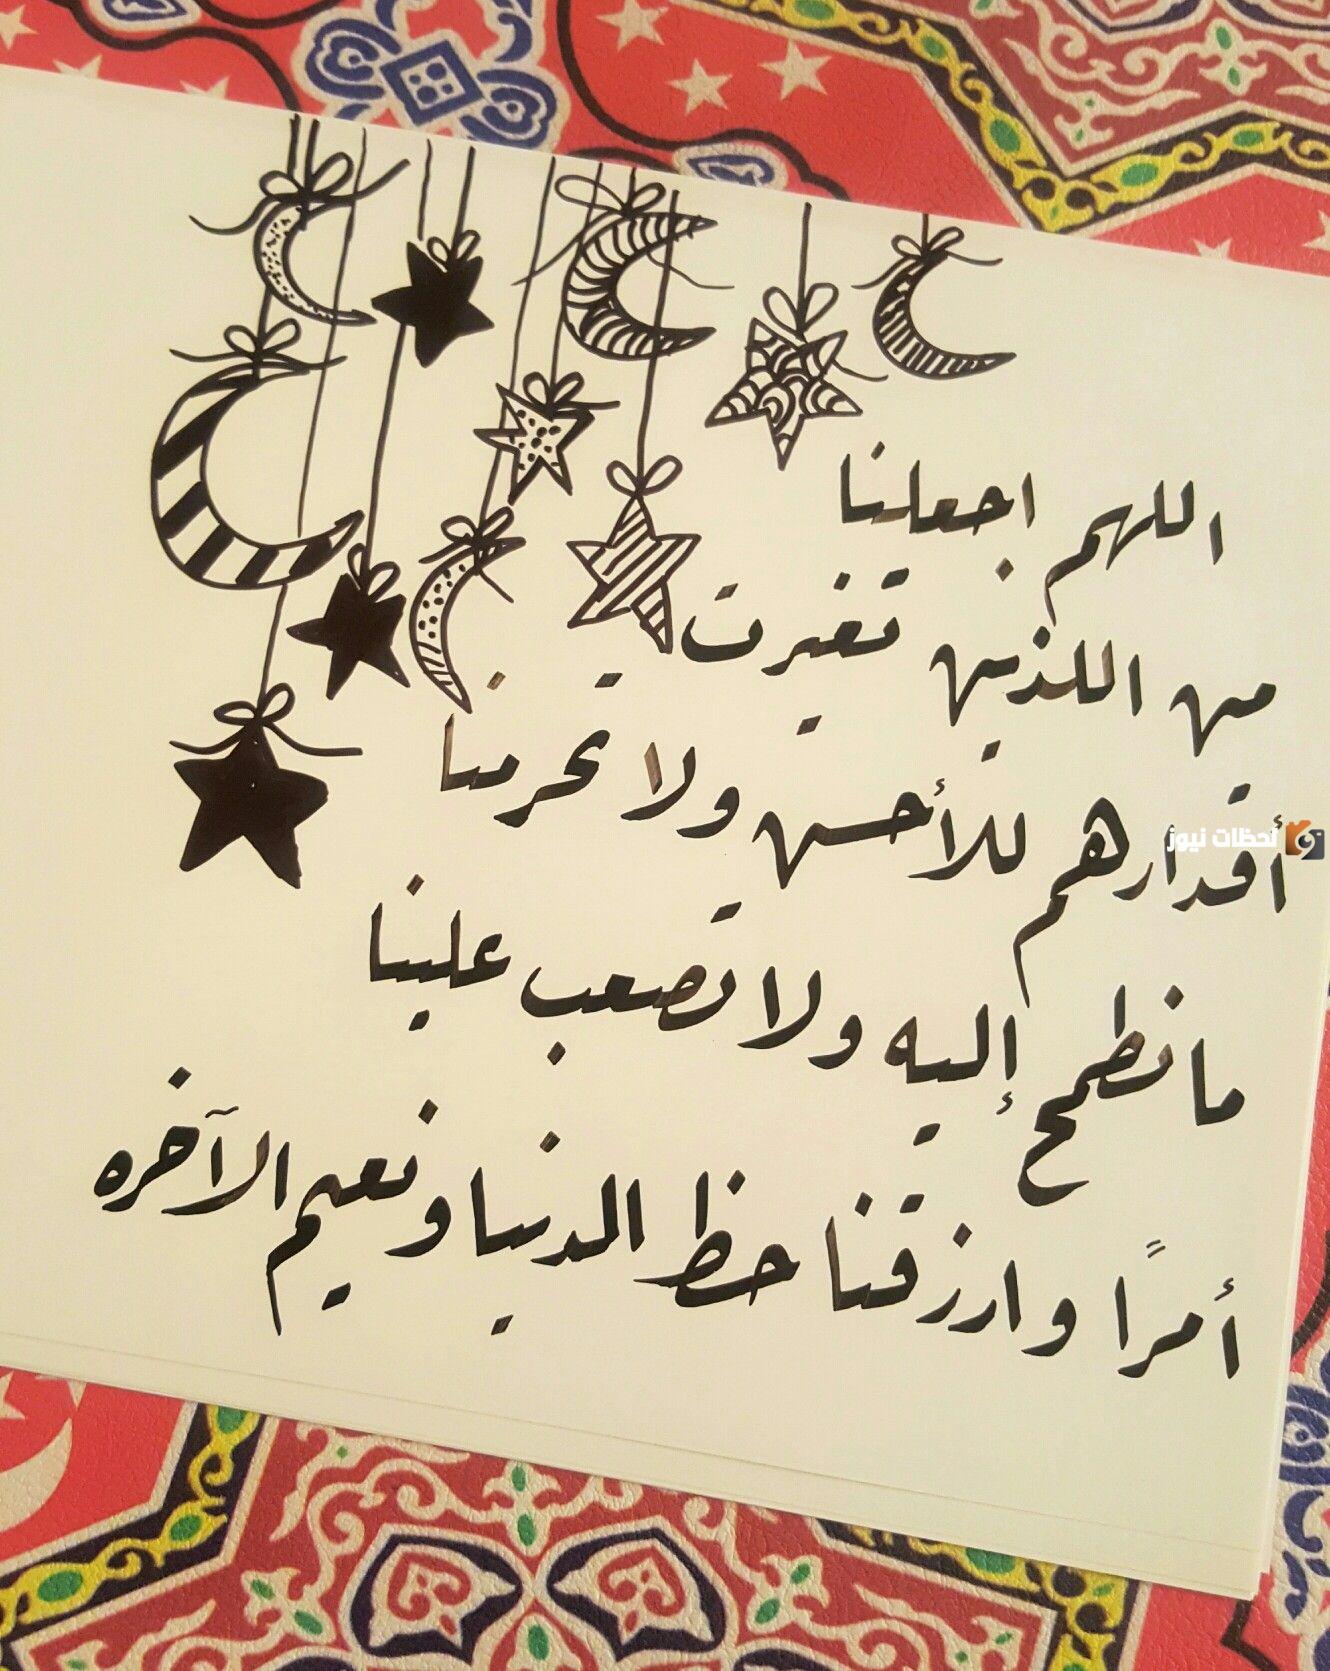 اللهم اجعلنا
من اللذين تغيرت
أقدارهم للأحسن ولا تحرمنا
ما نطمح إليه ولا تصعب علينا
أمرًا وارزقنا حظ الدنيا ونعيم الآخره
لحظات نيوز